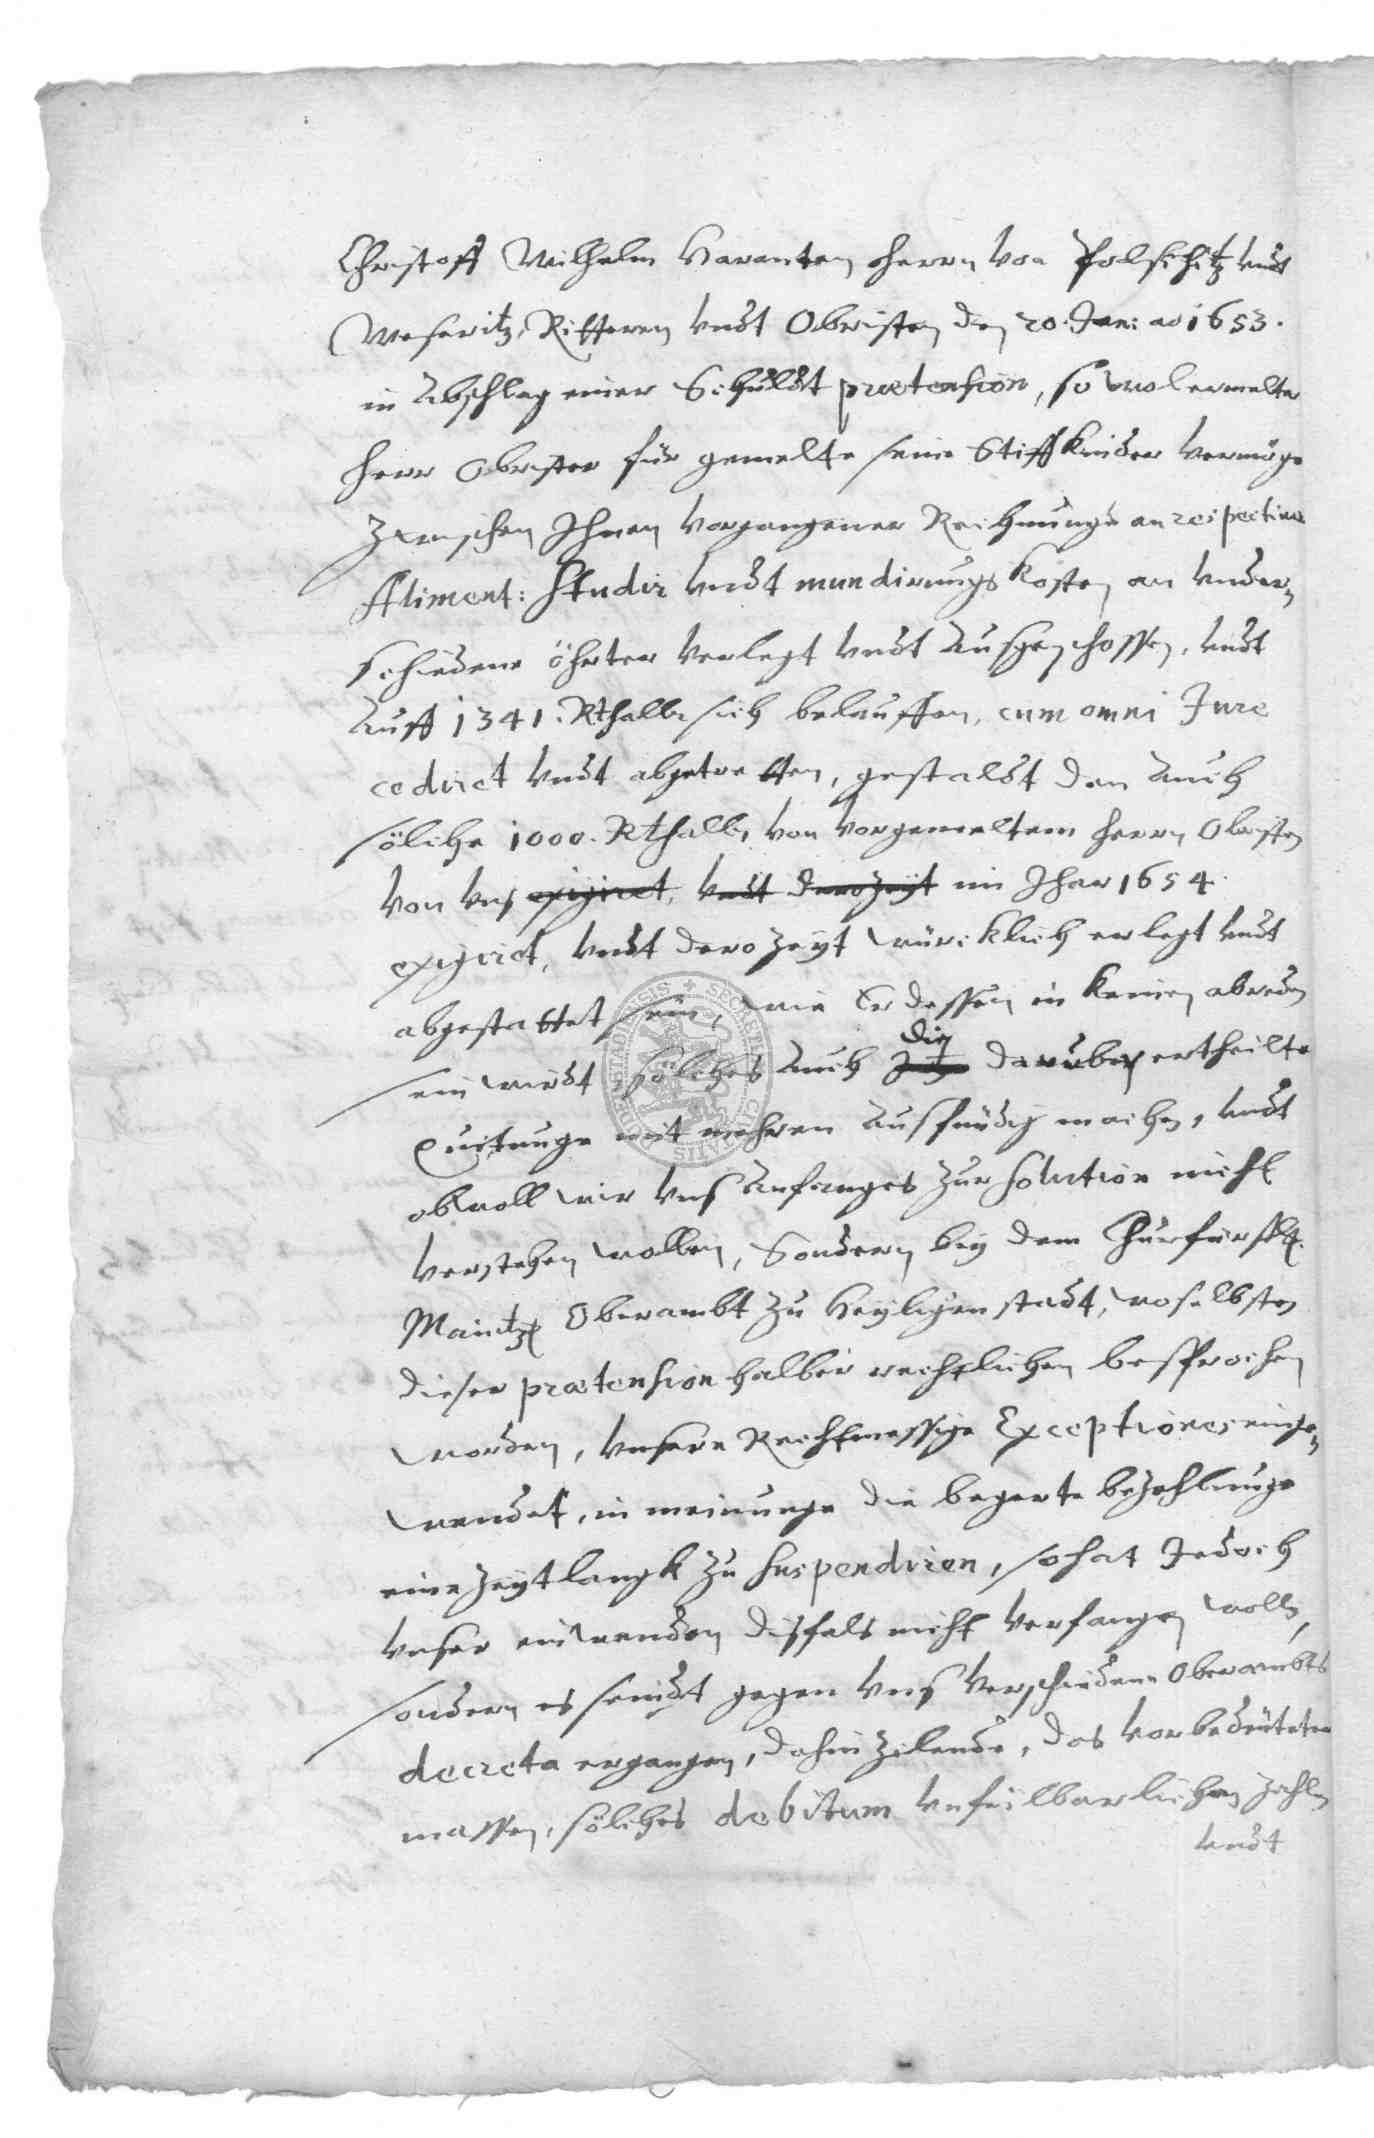 Christoff Wilhelm Haranten Herrn von Polschitz undt
Weseritz, Rittern undt Obristen den 20. Jan: ao 1653.
in Abschlag einer Schuldt prætension, so wolermelter
Herr Obrister für gemelte seine Stiffkinder vermöge
zwischen Ihnen vorgangener Rechnunge an respective
Aliment: Studir undt mundirungs Kosten an under-
schiedene öhrter verlegt undt ausgeschossen, undt
auff 1341. Rthallr sich belauffen, cum omni Jure
cediret undt abgetretten, gestaldt den auch
sölche 1000. Rthallr, von vorgemeltem Herrn Obristen
von uns exigiret, undt derozeyt im Jhar 1654.
exigiret, undt derozeyt würcklich erlegt undt
abgestattet sein, wie Er dessen in keinen abreden
sein wirdt, sölches auch die darüber ertheilte
Quitunge mit mehren ausfündig machen, undt
obwoll wir uns Anfanges zur solution nicht
verstehen wollen, Sondern bey dem Churfürstl.
Maintz. Oberambt zu Heyligenstadt, woselbsten
dieser prætension halber rechtlichen besprochen
worden, unsere Rechtmessige Exceptiones einge-
wendet, in meinunge die begerte bezahlunge
eine zeytlangk zu suspendiren, so hat Jedoch
unser einwenden disfals nicht verfangen wollen,
sondern es seindt gegen uns verschiedene Oberambts
decreta ergangen, dahin zilende, das vorbedeuteter
massen, sölches debitum unfeilbarlichen zahlen
undt
SECRETE CIVITATIS